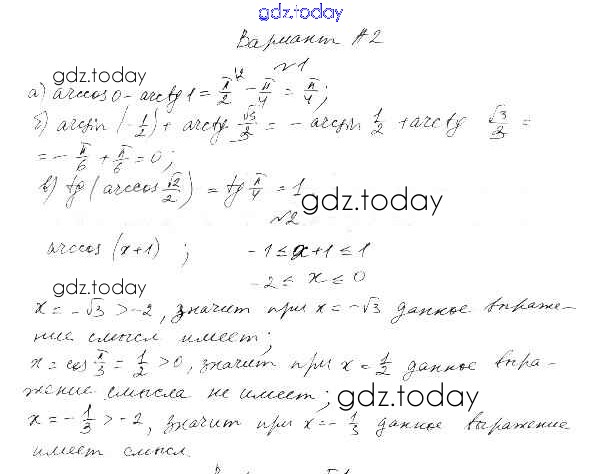 gdz.today
Вариант А2
№1
gdz.today
а) arccos 0 - arctg 1 = π/2 - π/4 = π/4;
б) arcsin (-1/2) + arctg √3/3 = - arcsin 1/2 + arctg √3/3 =
= - π/6 + π/6 = 0;
в) tg (arccos √2/2) = tg π/4 = 1
gdz.today
№2
arccos (x+1) ; -1 ≤ x+1 ≤ 1
-2 ≤ x ≤ 0
gdz.today
x = -√3 > -2, значит при x = -√3 данное выраже-
ние смысл имеет;
x = cos π/3 = 1/2 > 0, значит при x = 1/2 данное выра-
жение смысла не имеет;
gdz.today
x = - 1/3 > -2, значит при x = - 1/3 данное выражение
имеет смысл.